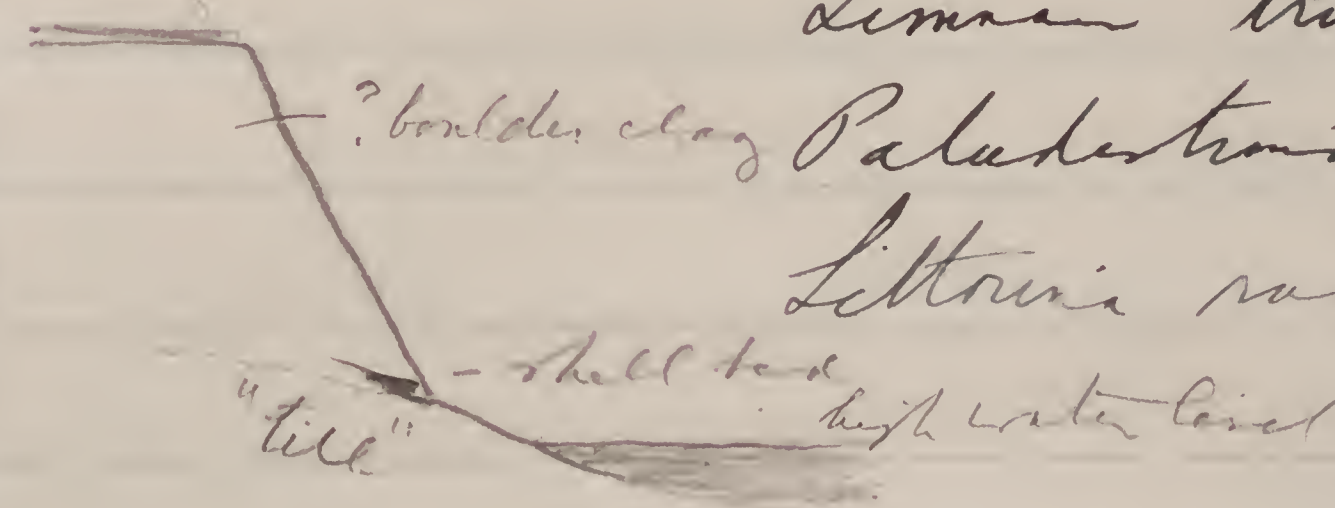 Limnaea
? boulder clay
Paludestrina
Littorina
- shell bed
high water level
"till"